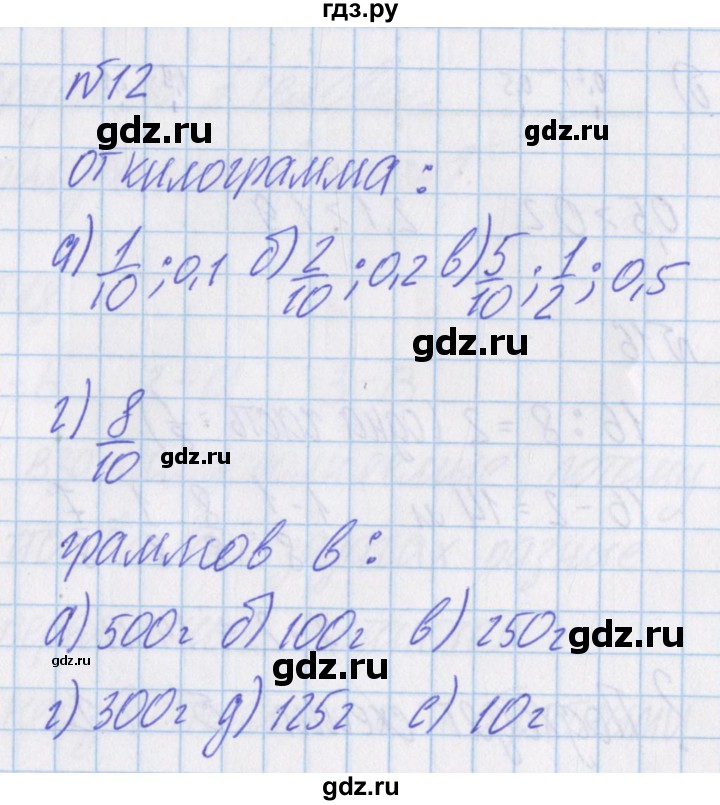 гдз.ру
№12
gdz.ru gdz.ru
от килограмма:
а) 1/10; 0,1 б) 2/10; 0,2 в) 5/10; 1/2; 0,5
gdz.ru
г) 8/10
gdz.ru
граммов в:
а) 500г б) 100г в) 250г
gdz.ru gdz.ru gdz.ru
г) 300г д) 125г е) 10г
gdz.ru